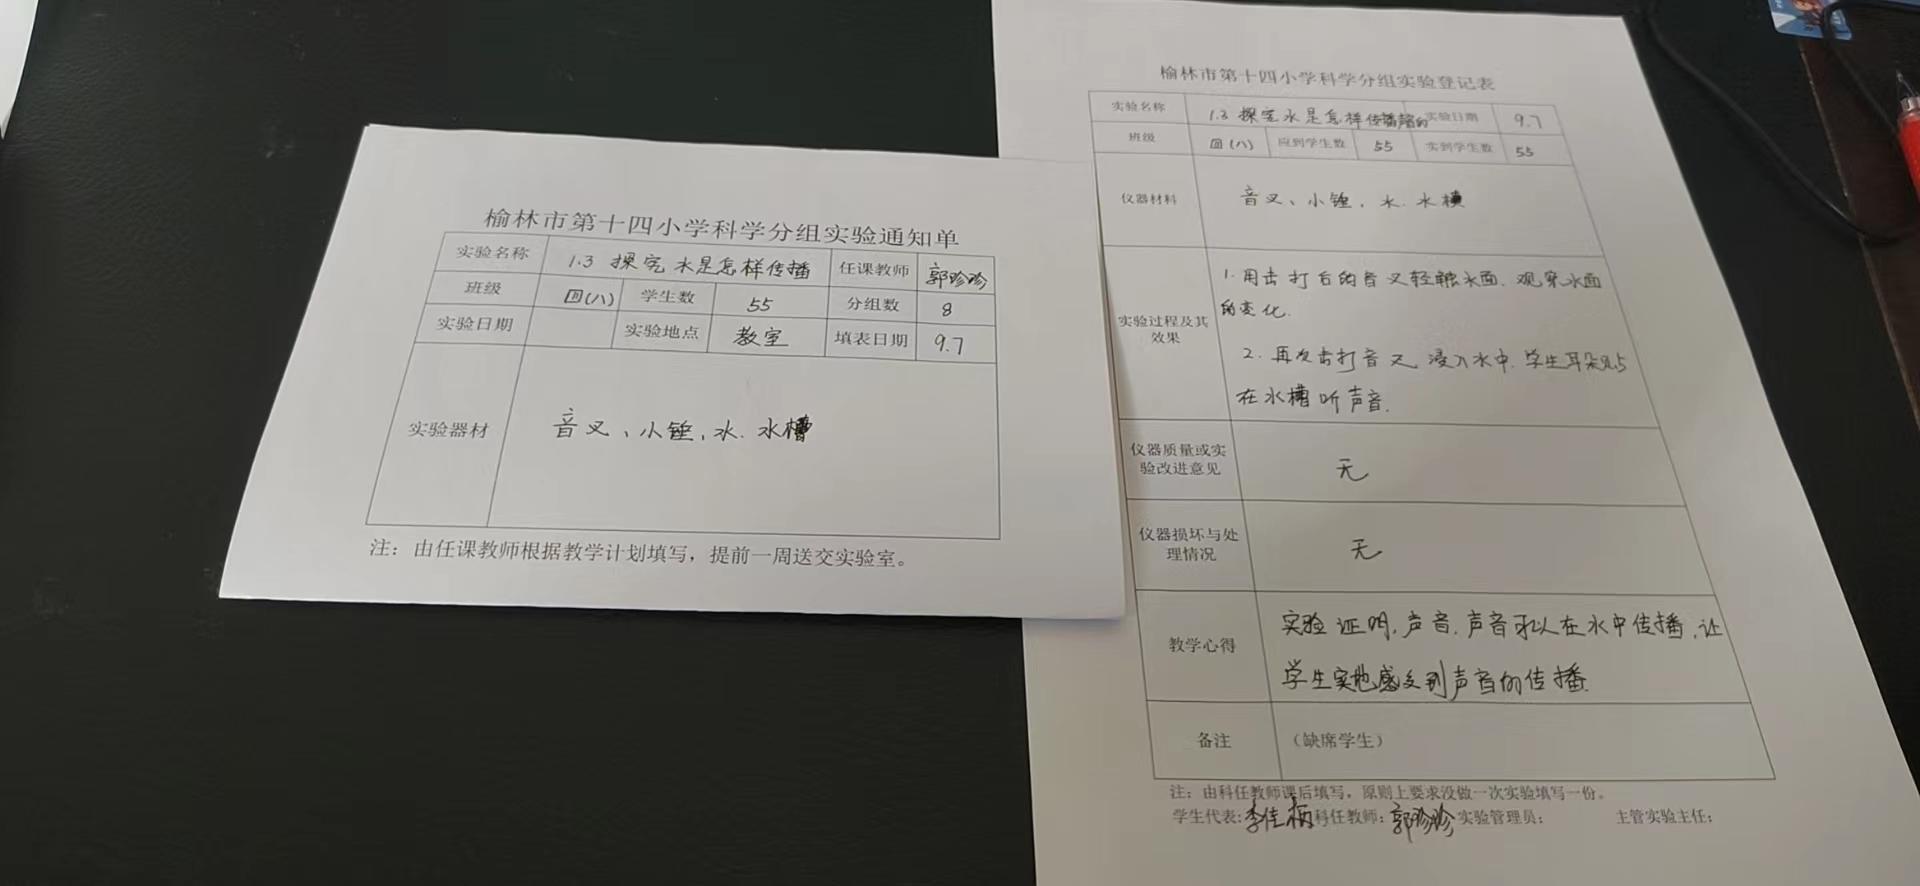 榆林市第十四小学科学分组实验通知单
实验名称 1.3 探究水是怎样传播 任课教师 郭珍珍
班级 四(八) 学生数 55 分组数 8
实验日期 实验地点 教室 填表日期 9.7
实验器材 音叉、小锤,水.水槽
注：由任课教师根据教学计划填写，提前一周送交实验室。
榆林市第十四小学科学分组实验登记表
实验名称 1.3 探究水是怎样传播声音的 实验日期 9.7
班级 四(八) 应到学生数 55 实到学生数 55
仪器材料 音叉、小锤,水.水槽
实验过程及其效果
1.用击打后的音叉轻触水面.观察水面
的变化.
2.再次击打音叉,浸入水中.学生耳朵贴
在水槽听声音.
仪器质量或实验改进意见 无
仪器损坏与处理情况 无.
教学心得 实验证明,声音.声音可以在水中传播,让
学生实地感受到声音的传播.
备注 （缺席学生）
注：由科任教师课后填写，原则上要求没做一次实验填写一份。
学生代表:李佳 科任教师:郭珍珍 实验管理员: 主管实验主任: